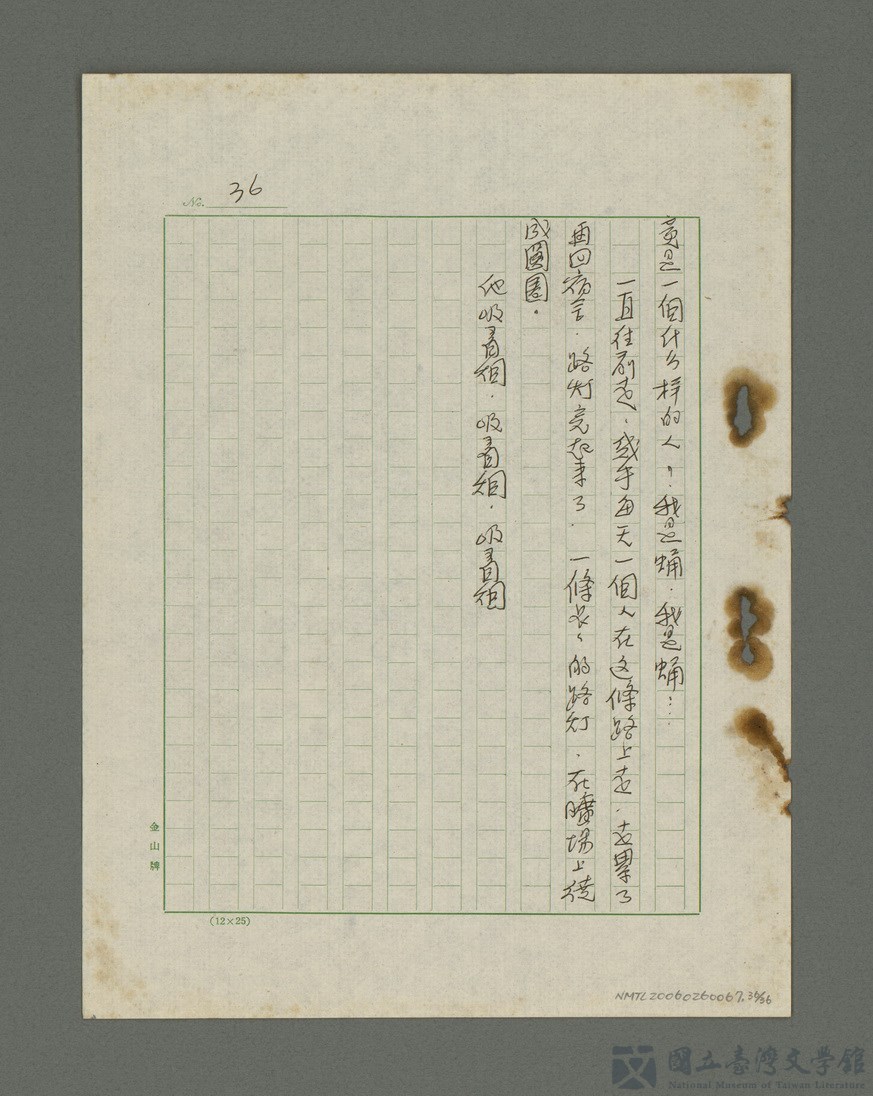 No. 36
竟是一個什么樣的人？我是蛹．我是蛹…
一直往前走，或乎每天一個人在这條路上走．走累了
再回病舍．路灯亮起来了．一條长長的路灯．在曠場上繞
成圈圈．
他吸着烟．吸着烟．吸着烟
金山牌
(12×25)
NMTL20060260067.36/36
國立臺灣文學館
National Museum of Taiwan Literature